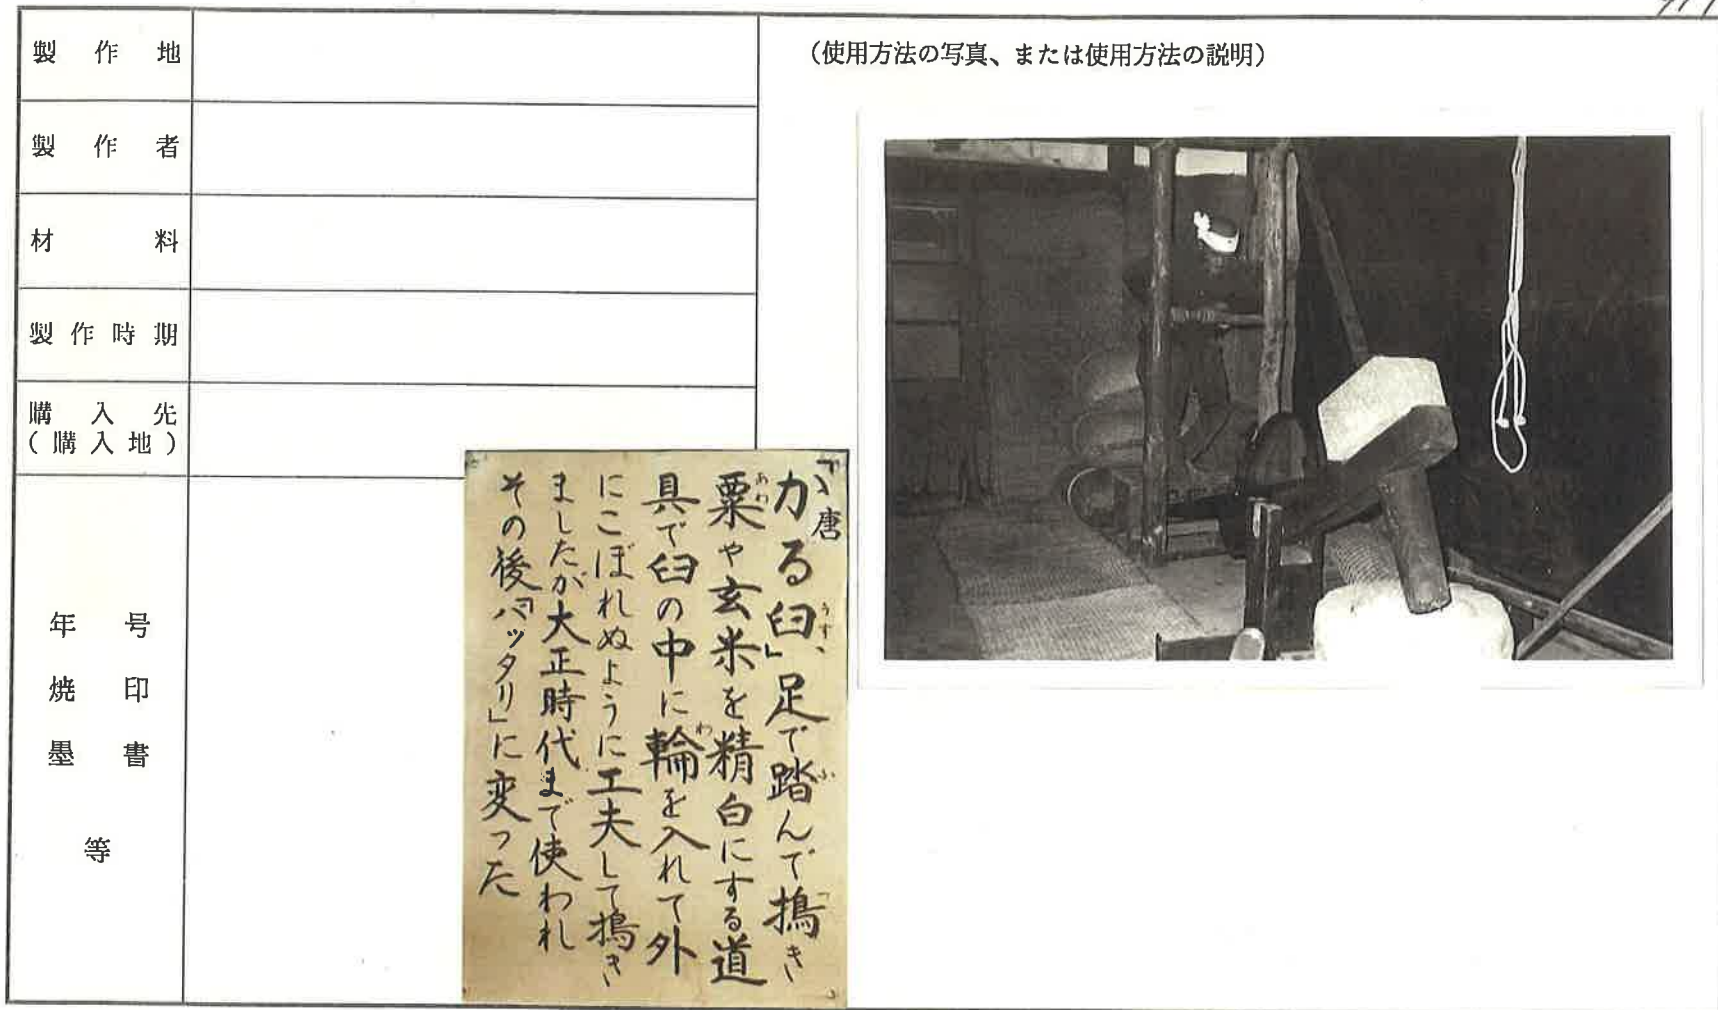 製作地
製作者
材料
製作時期
購入先
(購入地)
年号
焼印
墨書
等
(使用方法の写真、または使用方法の説明)
「がる臼」足で踏んで搗き
唐
うす
ふ
つ
粟や玄米を精白にする道
あわ
具で臼の中に輪を入れて外
わ
にこぼれぬように工夫して搗き
ましたが大正時代まで使われ
その後「バッタリ」に変った